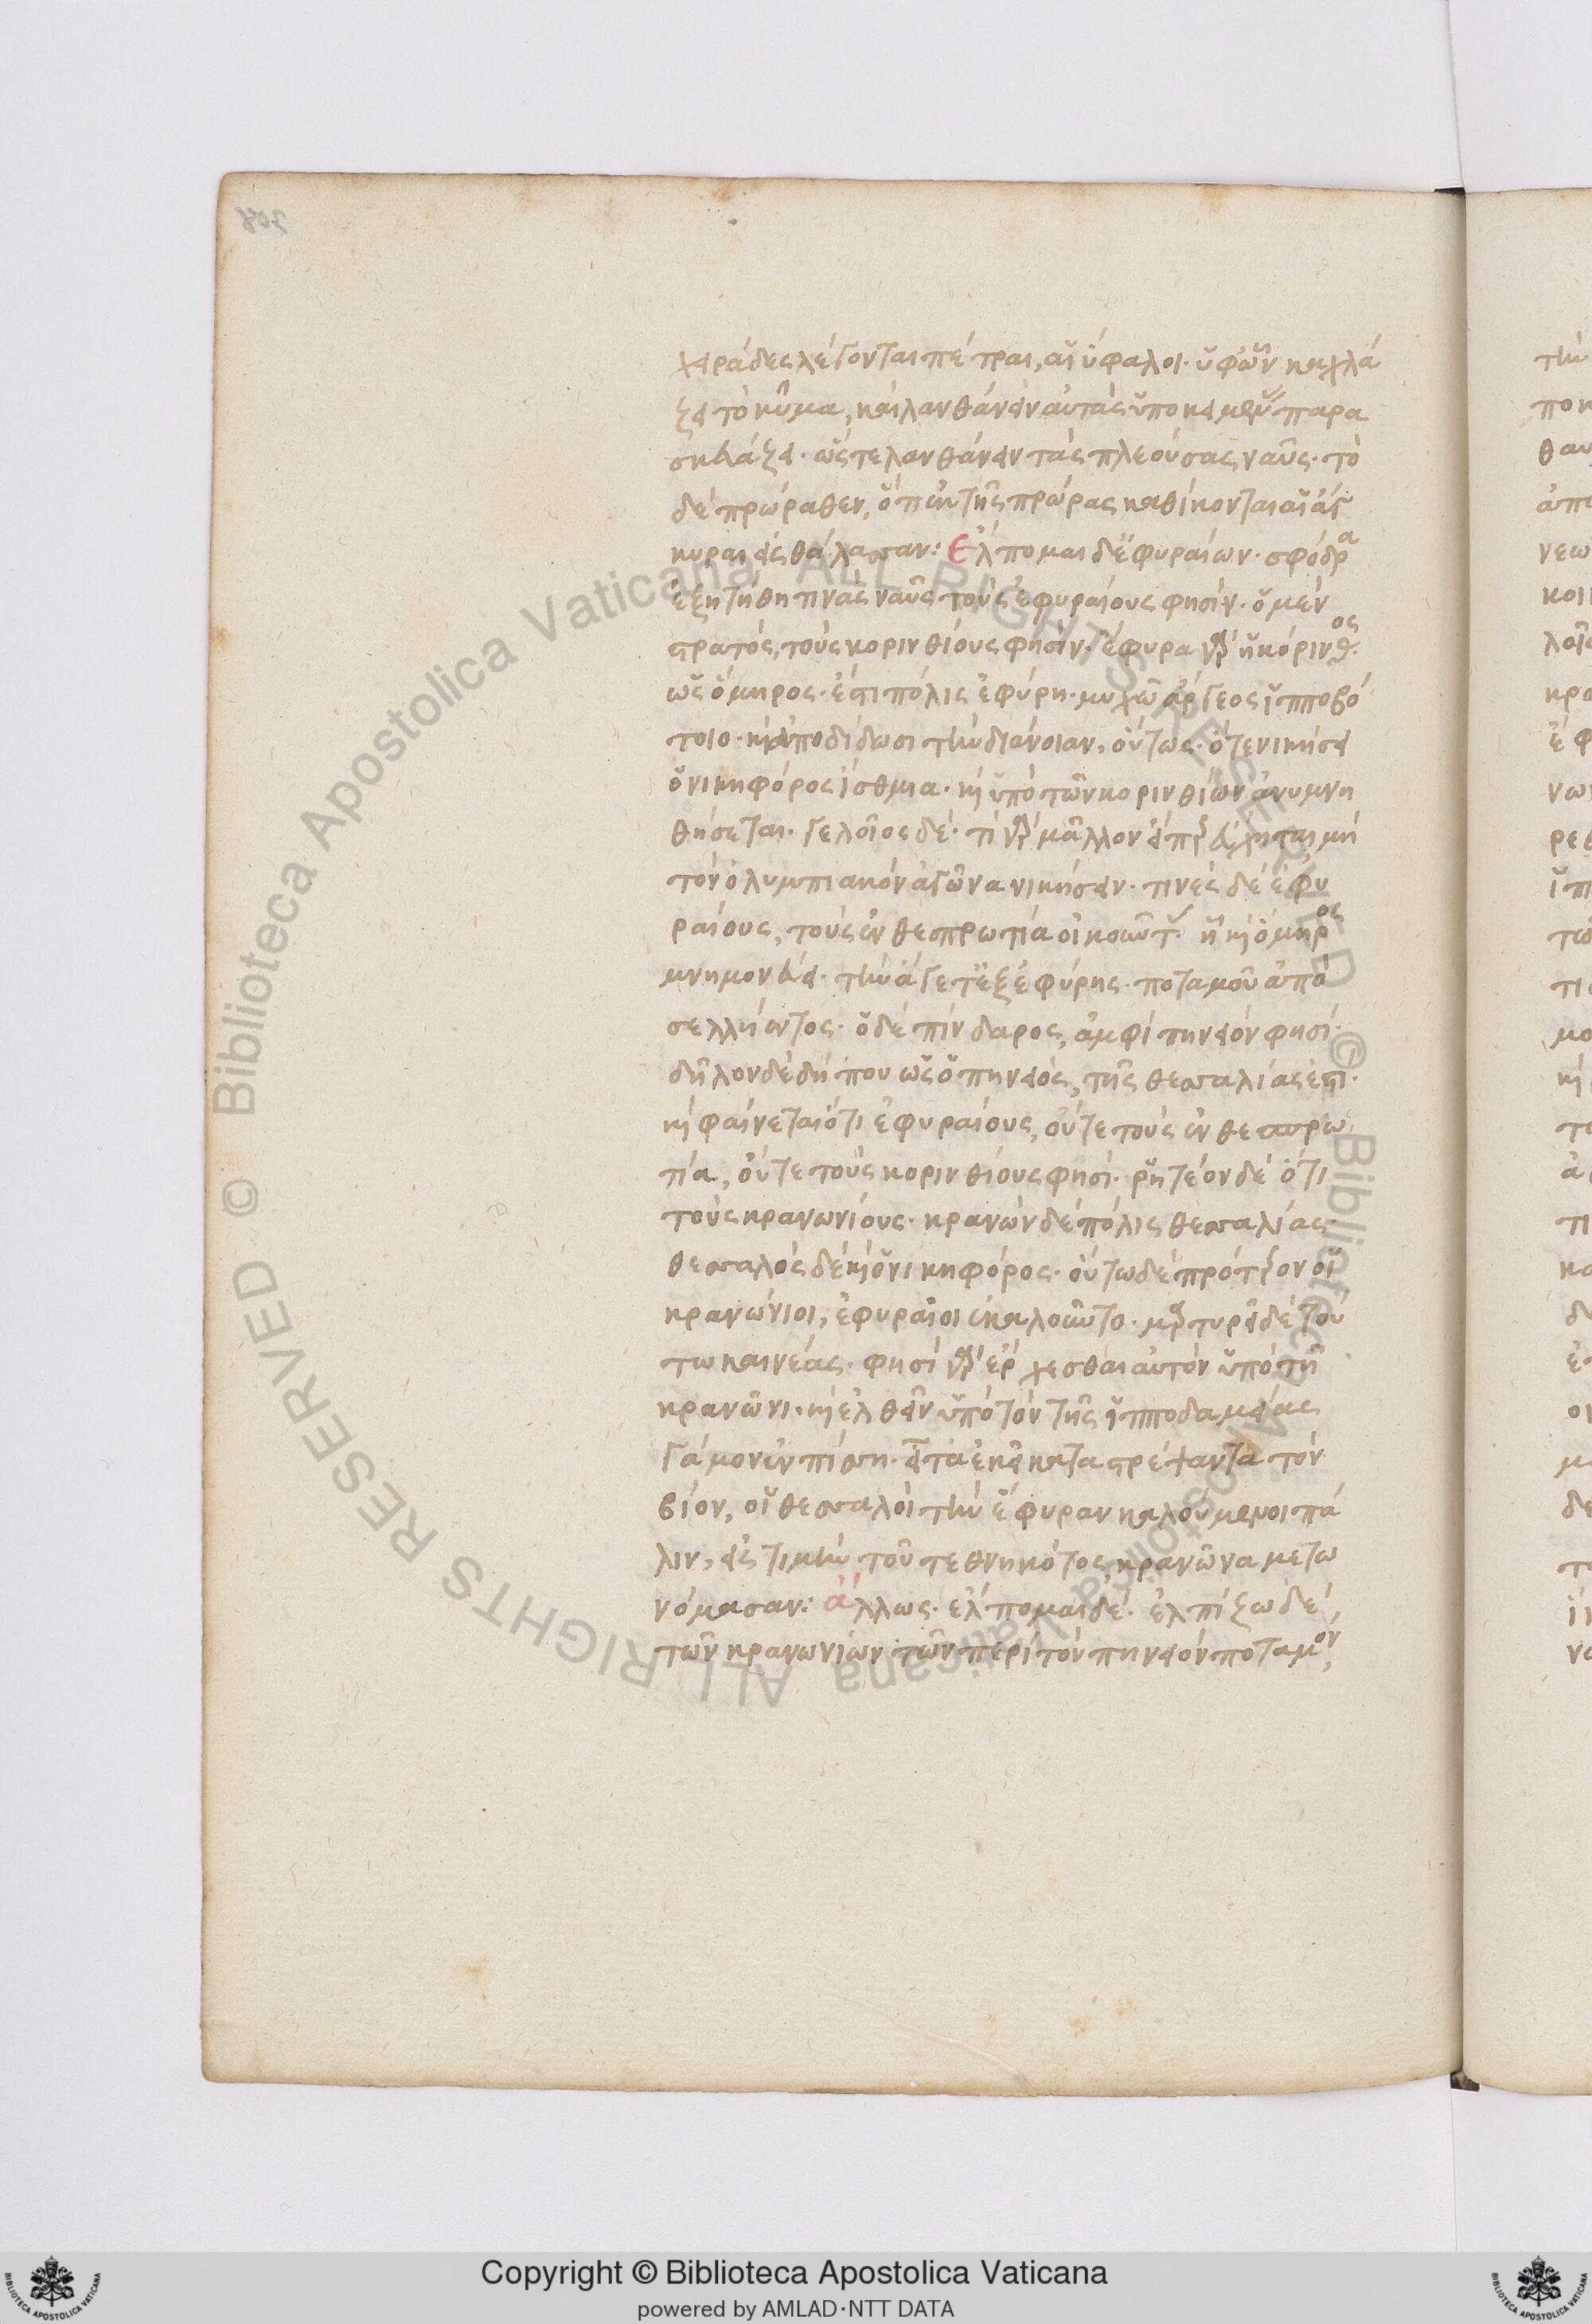 χεράδες λέγονται πέτραι, αἱ ὕφαλοι· ὑφ' ὧν καχλά
ζει τὸ κῦμα, καὶ λανθάνειν αὐτὰς ὑποκειμένας παρα
σκευάζει· ὥστε λανθάνειν τὰς πλεούσας ναῦς· τὸ
δὲ πρώραθεν, ὅτι ἐκ τῆς πρώρας καθίκονται αἱ ἄγ
κυραι εἰς θάλασσαν: Ἔλπομαι δ' ἐφυραίων· σφόδρα
ἐζητήθη τίνας ναῦς τοὺς ἐφυραίους φησίν· ὁ μὲν
στρατὸς, τοὺς κορινθίους φησίν· ἔφυρα γὰρ ἡ κόρινθος·
ὡς ὅμηρος· ἔστι πόλις ἐφύρη· μυχῶ ἄργεος ἱπποβό
τοιο· καὶ ἀποδίδωσι τὴν διάνοιαν, οὕτως· ὅτε νικήσει
ὁ νικηφόρος ἴσθμια· καὶ ὑπὸ τῶν κορινθίων ἀνυμνη
θήσεται· γελοῖος δέ· τί γὰρ μᾶλλον εἴπερ εὔχηται μὴ
τὸν ὀλυμπιακὸν ἀγῶνα νικήσειν· τινὲς δὲ ἐφυ
ραίους, τοὺς ἐν θεσπρωτία οἰκοῦντας· ἧ καὶ ὅμηρος
μνημονεύει· τὴν ἄγετ' ἐξ ἐφύρης· ποταμοῦ ἀπὸ
σελλήεντος· ὁ δὲ πίνδαρος, ἀμφὶ πηνειόν φησι·
δῆλον δὲ δήπου ὡς ὁ πηνειὸς, τῆς θεσσαλίας ἐστι·
καὶ φαίνεται ὅτι ἐφυραίους, οὔτε τοὺς ἐν θεσπρω
τία, οὔτε τοὺς κορινθίους φησί· ῥητέον δὲ ὅτι
τοὺς κρανωνίους· κρανὼν δὲ πόλις θεσσαλίας·
θεσσαλὸς δὲ καὶ ὁ νικηφόρος· οὕτω δὲ πρότερον οἱ
κρανώνιοι, ἐφυραῖοι ἐκαλοῦντο· μαρτυρεῖ δὲ τού
τω καινέας· φησὶ γὰρ ἔρχεσθαι αὐτὸν ὑπὸ τῆ
κρανῶνι· καὶ ἐλθεῖν ὑπὸ τὸν τῆς ἱπποδαμείας
γάμον ἐν πίσση· εἶτα ἐκεῖ καταστρέψαντα τὸν
βίον, οἱ θεσσαλοὶ τὴν ἔφυραν καλούμενοι πά
λιν, εἰς τιμὴν τοῦ τεθνηκότος, κρανῶνα μετω
νόμασαν: ἄλλως· ἔλπομαι δέ· ἐλπίζω δὲ
τῶν κρανωνίων τῶν περὶ τὸν πηνειὸν ποταμὸν,
Copyright © Biblioteca Apostolica Vaticana
powered by AMLAD·NTT DATA